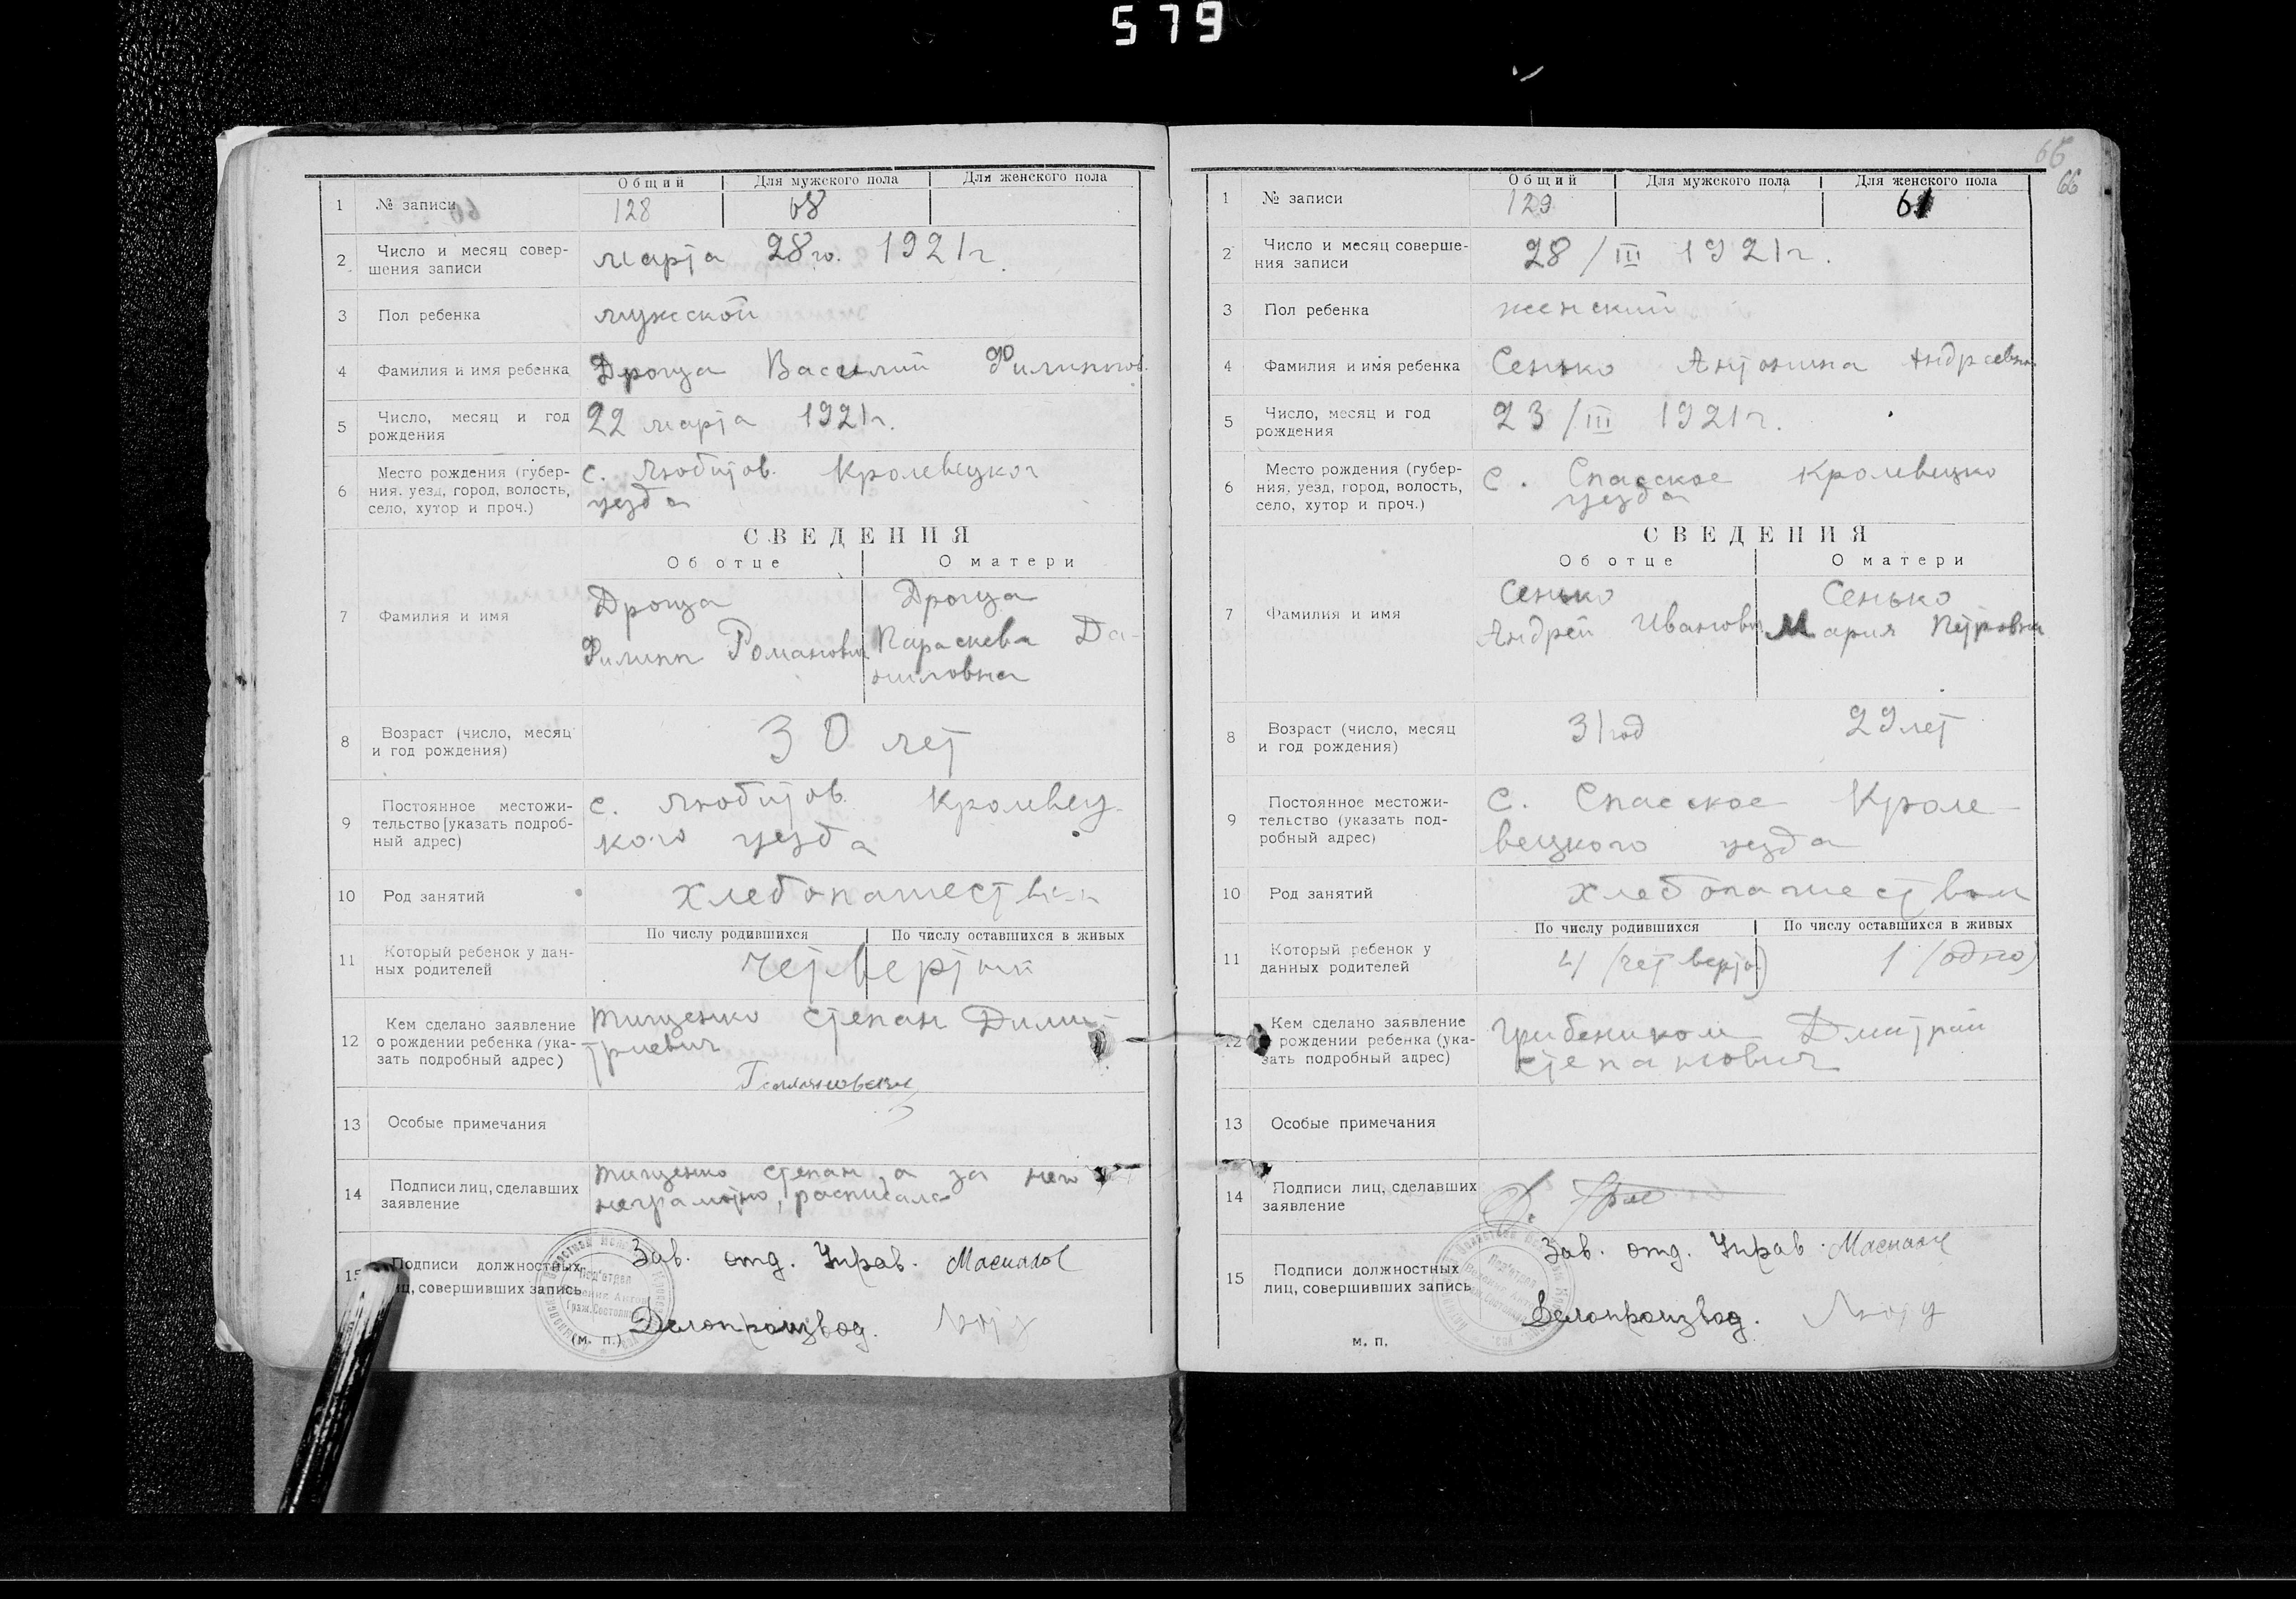 579
Общий Для мужского пола Для женского пола
1 № записи 128 68
2 Число и месяц совер-
шения записи марта 28го. 1921г.
3 Пол ребенка мужской
4 Фамилия и имя ребенка Дроща Василий Филипов.
5 Число, месяц и год
рождения 22 марта 1921г.
6 Место рождения (губер-
ния, уезд, город, волость,
село, хутор и проч.)
с. Любитов. Кролевецког
уезда
СВЕДЕНИЯ
Об отце О матери
7 Фамилия и имя
Дроща Дроща
Филипп Романович Параскева Да-
ниловна
8 Возраст (число, месяц
и год рождения) 30 лет
9 Постоянное местожи-
тельство (указать подроб-
ный адрес)
с. Любитов. Кролевец-
кого уезда
10 Род занятий хлебопашеством
По числу родившихся По числу оставшихся в живых
11 Который ребенок у дан-
ных родителей четвертый
12 Кем сделано заявление
о рождении ребенка (ука-
зать подробный адрес)
Тищенко Степан Дими-
триевич
13 Особые примечания
14 Подписи лиц, сделавших
заявление
Тищенко Степан, а за него
неграмотно, расписался
15 Подписи должностных
лиц, совершивших запись
Зав. отд. Управ.
Делопроизвод.
(м. п.)
66
66
Общий Для мужского пола Для женского пола
1 № записи 129 61
2 Число и месяц соверше-
ния записи 28/III 1921г.
3 Пол ребенка женский
4 Фамилия и имя ребенка Сенько Антонина Андреевна
5 Число, месяц и год
рождения 23/III 1921г.
6 Место рождения (губер-
ния, уезд, город, волость,
село, хутор и проч.)
с. Спасское Кролевецко
уезда
СВЕДЕНИЯ
Об отце О матери
7 Фамилия и имя
Сенько Сенько
Андрей Иванович Мария Петровна
8 Возраст (число, месяц
и год рождения) 31 год 29 лет
9 Постоянное местожи-
тельство (указать под-
робный адрес)
с. Спасское Кроле-
вецкого уезда
10 Род занятий хлебопашеством
По числу родившихся По числу оставшихся в живых
11 Который ребенок у
данных родителей 4 (четверто) 1 (одно)
12 Кем сделано заявление
о рождении ребенка (ука-
зать подробный адрес)
Грибеником Дмитрий
Степанович
13 Особые примечания
14 Подписи лиц, сделавших
заявление
15 Подписи должностных
лиц, совершивших запись
Зав. отд. Управ.
Делопроизвод.
м. п.